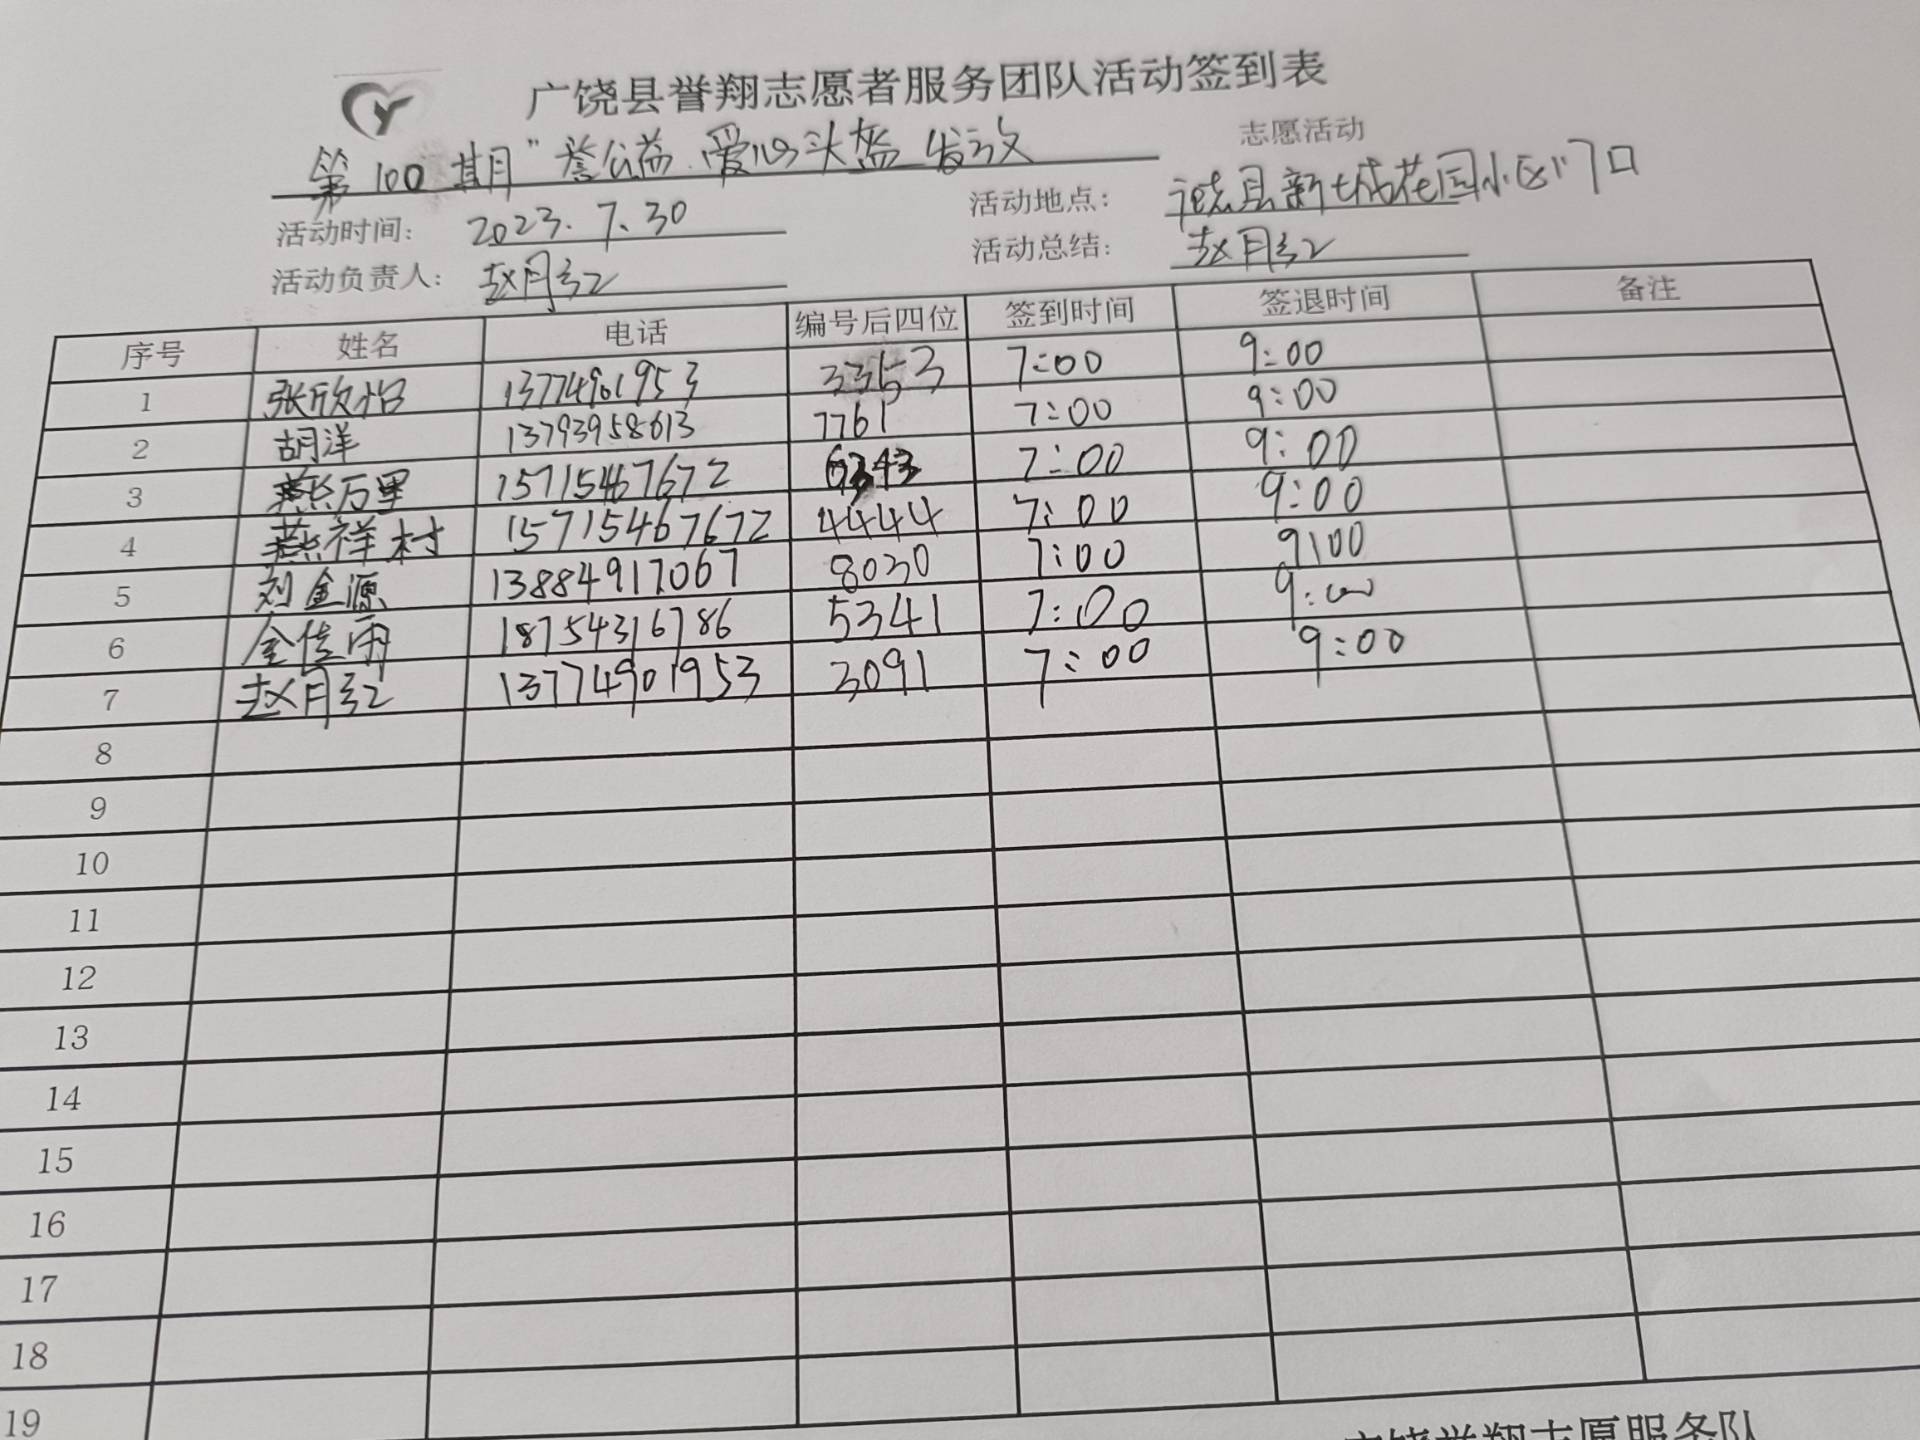 广饶县誉翔志愿者服务团队活动签到表
第100期"誉公益.爱心头盔发放 志愿活动
活动时间: 2023.7.30 活动地点: 饶县新城花园小区门口
活动负责人: 赵月红 活动总结: 赵月红
序号 姓名 电话 编号后四位 签到时间 签退时间 备注
1 张欣怡 13774901953 3353 7:00 9:00
2 胡洋 13793958613 7761 7:00 9:00
3 燕万里 15715467672 6343 7:00 9:00
4 燕祥村 15715467672 4444 7:00 9:00
5 刘金源 13884917067 8030 7:00 9:00
6 金佳雨 18754316786 5341 7:00 9:00
7 赵月红 13774901953 3091 7:00 9:00
8
9
10
11
12
13
14
15
16
17
18
19
广饶誉翔志愿服务队